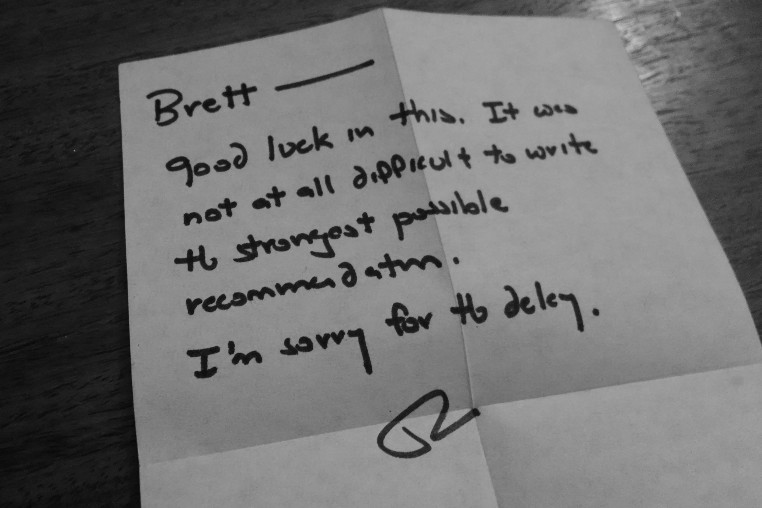 Brett —
good luck in this. It was
not at all difficult to write
th strongest possible
recommendation.
I'm sorry for th delay.